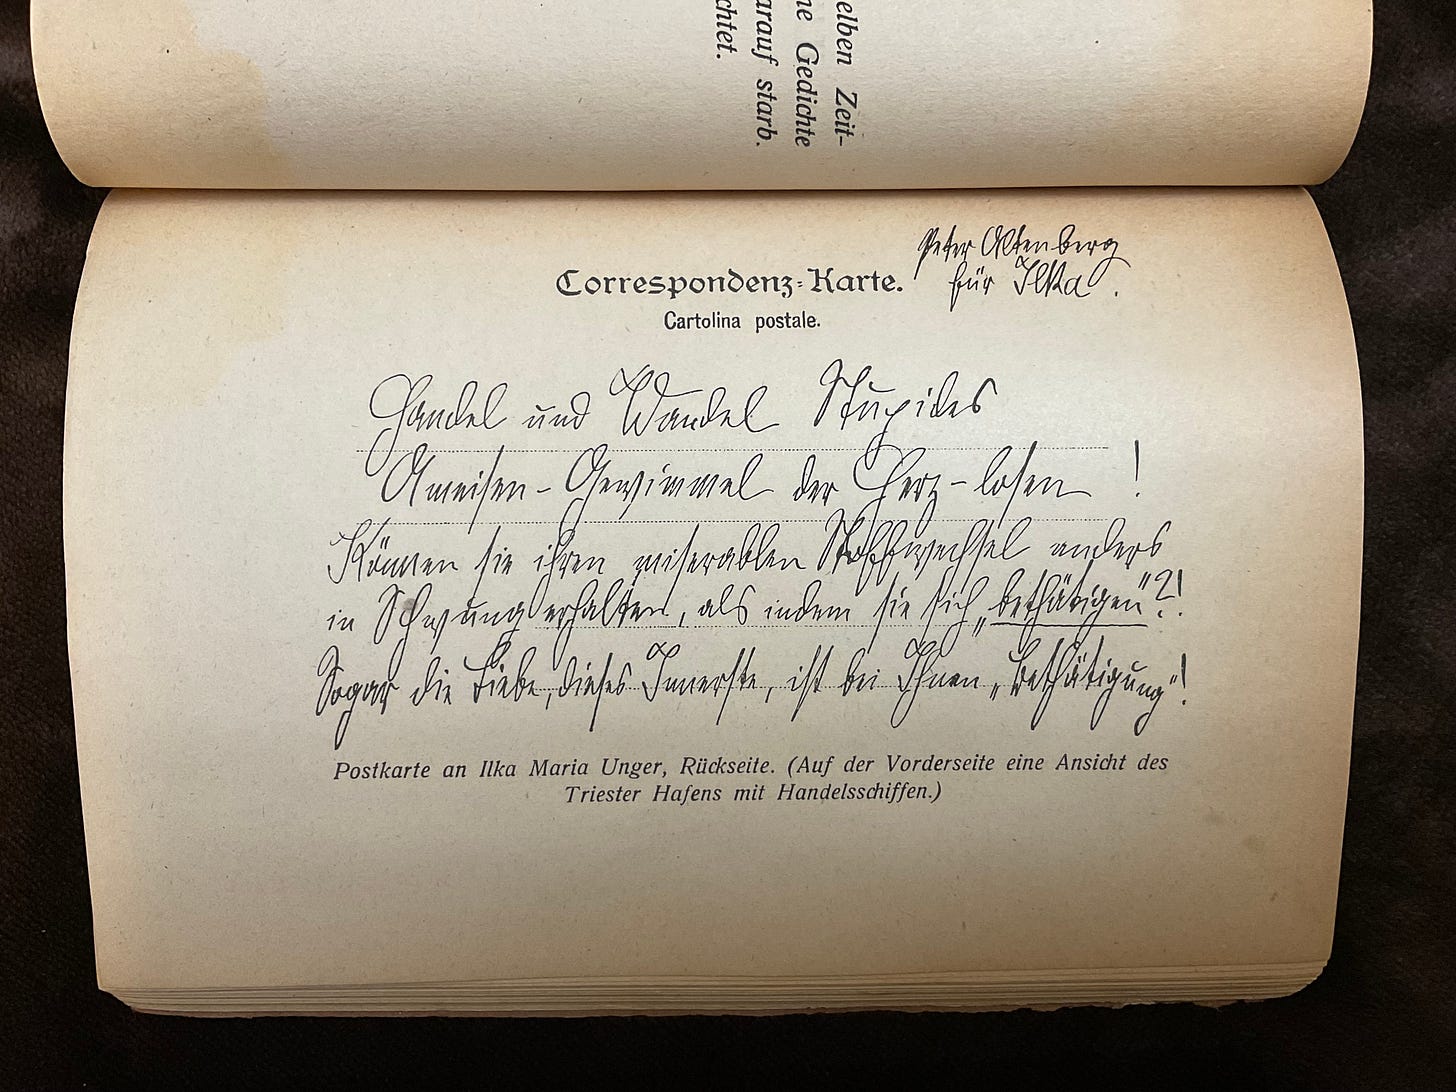 elben Zeit-
ne Gedichte
arauf starb.
chtet.
Peter Altenberg
für Ilka.
Correspondenz-Karte.
Cartolina postale.
Handel und Wandel Stupides
Ameisen-Gewimmel der Herz-losen!
Können sie ihren miserablen Stoffwechsel anders
in Schwung erhalten, als indem sie sich „bethätigen"?!
Sogar die Liebe, dieses Innerste, ist bei Ihnen „Bethätigung"!
Postkarte an Ilka Maria Unger, Rückseite. (Auf der Vorderseite eine Ansicht des
Triester Hafens mit Handelsschiffen.)